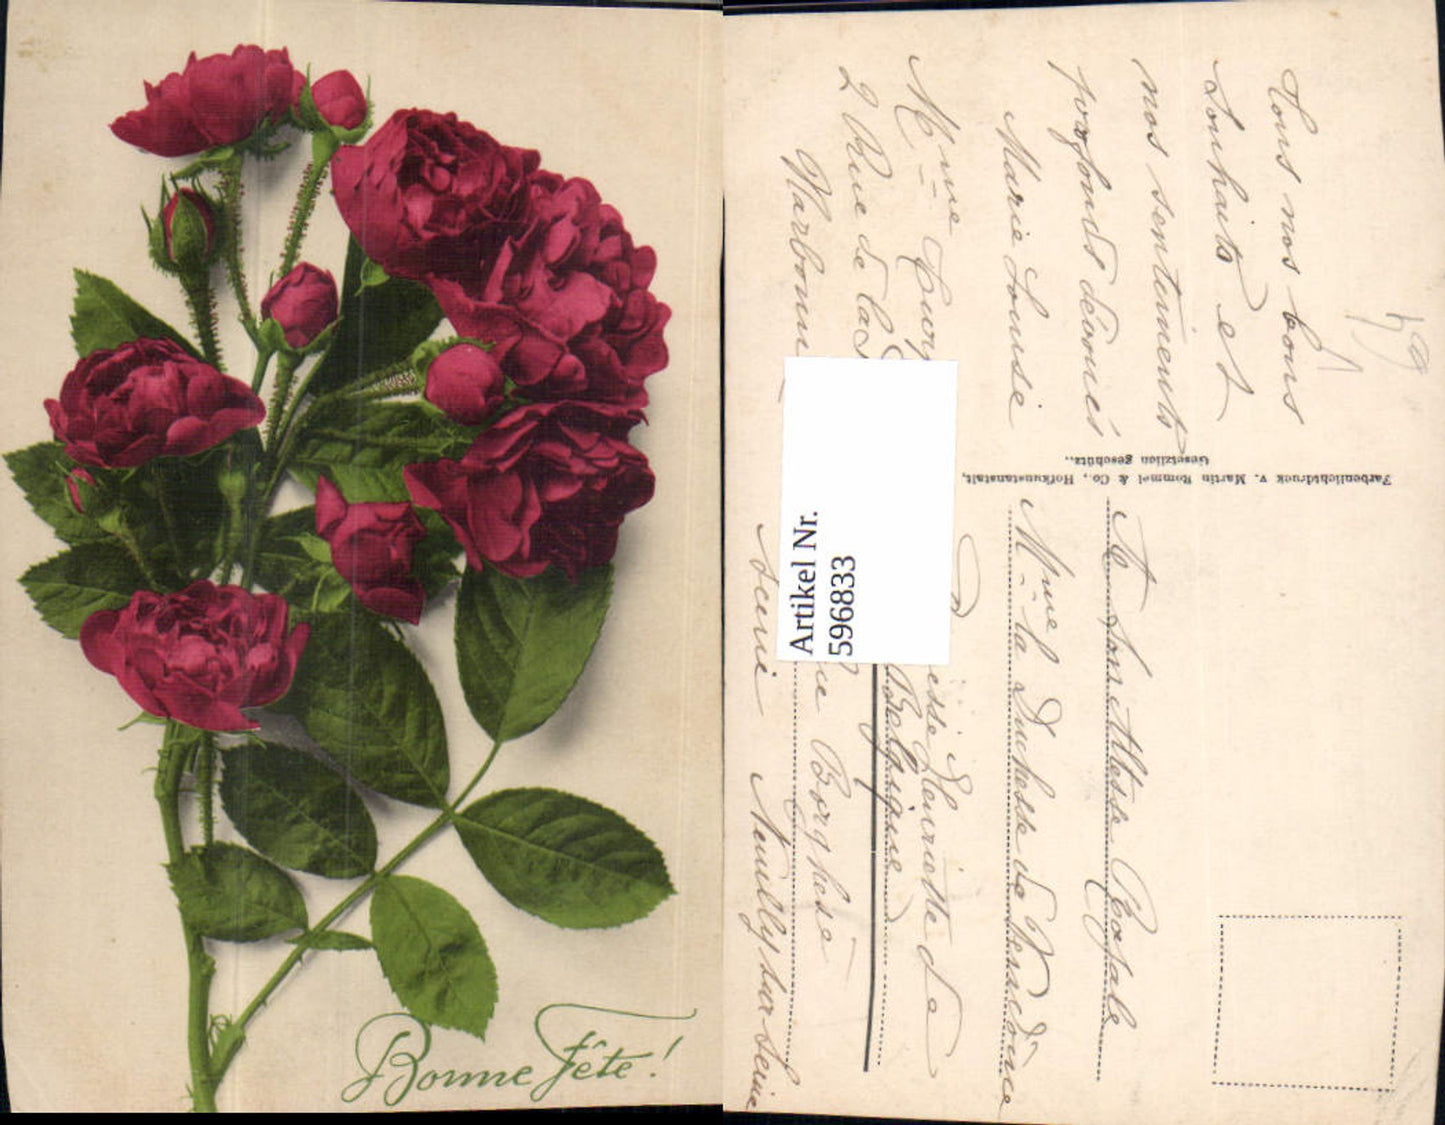 Bonne Fête!
Tous nos bons
Souhaits et
nos sentiments
profonds dévoués
Marie Louise
Mme
2 Rue de la
Narbonne
Farbenlichtdruck v. Martin Rommel & Co., Hofkunstanstalt,
Gesetzlich geschützt.
A Son Altesse Royale
Mme la Duchesse de Vendôme
Henriette de
Belgique
Borghese
Seine
Neuilly sur Seine
Artikel Nr.
596833